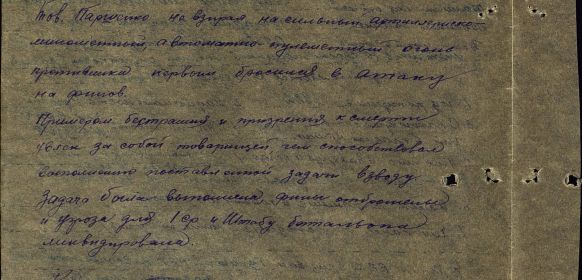 Тов. Паршенко не взирая на сильный артиллерийско
минометный, автоматно-пулеметный огонь
противника первым бросился в атаку
на финов.
Примером бестрашия и призрения к смерти
увлек за собой товарищей чем способствовал
выполнению поставленной задачи взводу
Задача была выполнена, фины отброшены
и угроза для 1 ср и Штабу батальона
ликвидирована